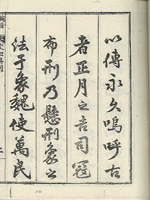 以傳永久嗚呼古
者正月之吉司寇
布刑乃懸刑象之
法于象魏使萬民